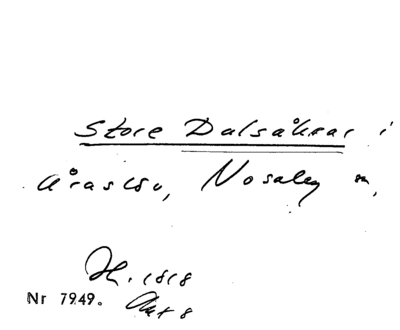 Store Dalsåkrar i
Åraslöv, Nosaby sn,
H. 1818
Nr 7949. Akt 8